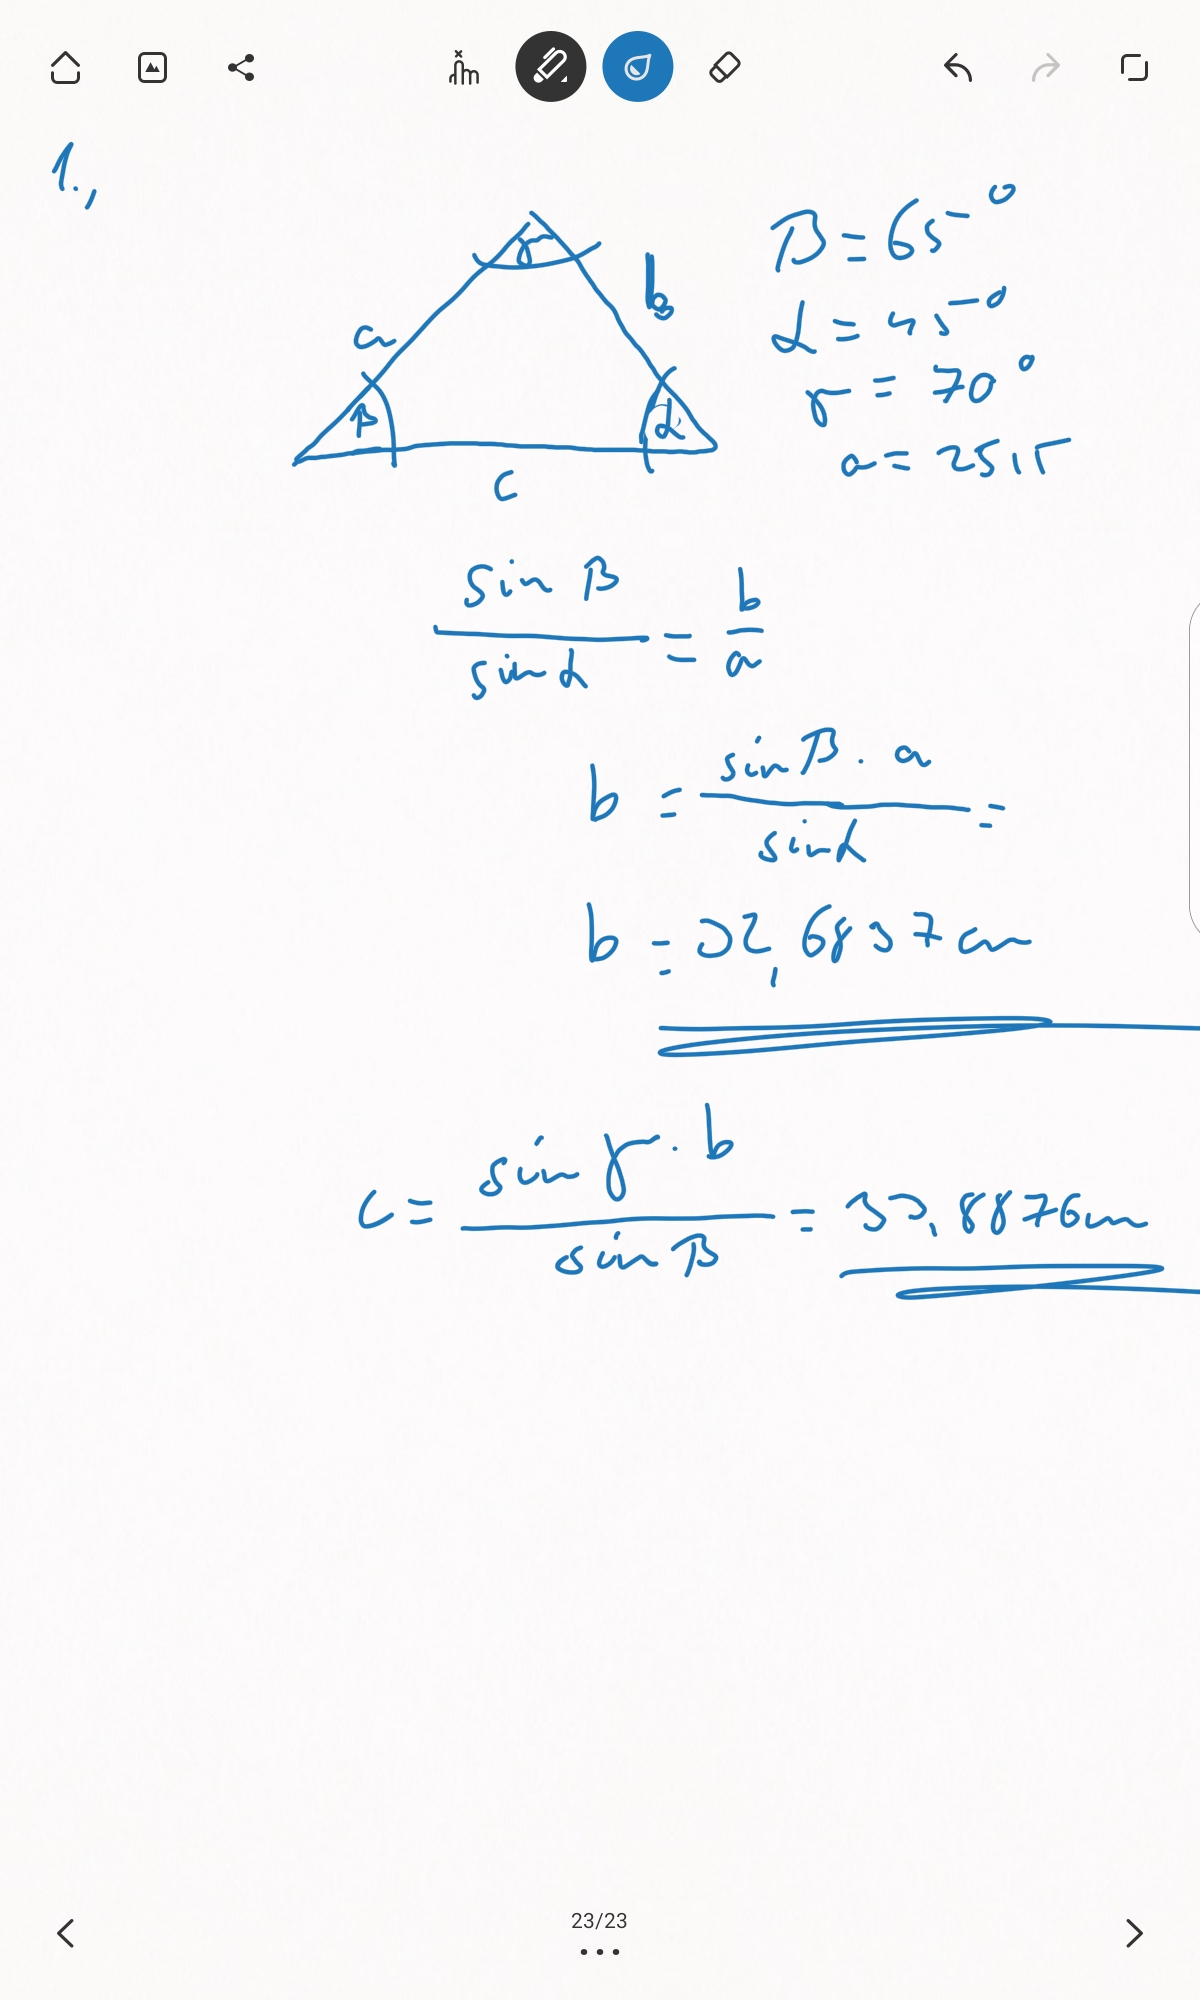 1.,
γ
a
b
β
α
c
β = 65°
α = 45°
γ = 70°
a = 25,5
sin β / sin α = b / a
b = sin β · a / sin α =
b = 32,6837 cm
c = sin γ · b / sin β = 33,8876 cm
23/23